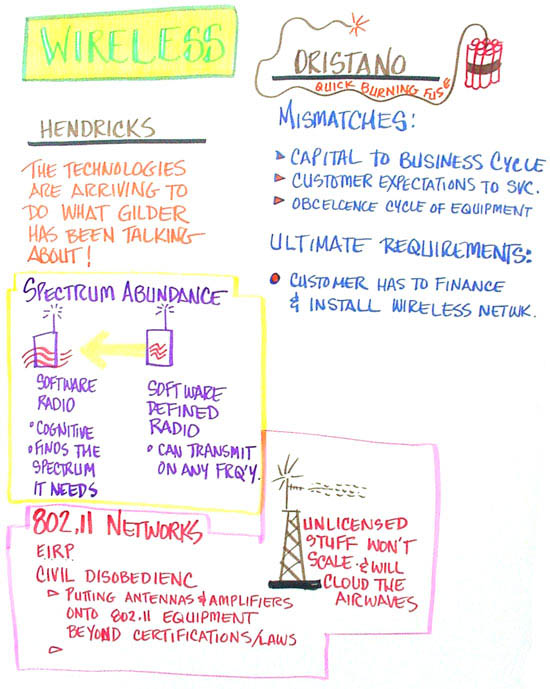 WIRELESS
HENDRICKS
THE TECHNOLOGIES
ARE ARRIVING TO
DO WHAT GILDER
HAS BEEN TALKING
ABOUT!
SPECTRUM ABUNDANCE
SOFTWARE
RADIO
• COGNITIVE
• FINDS THE
SPECTRUM
IT NEEDS
SOFTWARE
DEFINED
RADIO
• CAN TRANSMIT
ON ANY FRQ'Y.
802.11 NETWORKS
E.I.R.P.
CIVIL DISOBEDIENC
▷ PUTTING ANTENNAS & AMPLIFIERS
ONTO 802.11 EQUIPMENT
BEYOND CERTIFICATIONS/LAWS
▷
UNLICENSED
STUFF WON'T
SCALE & WILL
CLOUD THE
AIRWAVES
DRISTANO
QUICK BURNING FUSE
MISMATCHES:
▷ CAPITAL TO BUSINESS CYCLE
▷ CUSTOMER EXPECTATIONS TO SVC.
▷ OBCELCENCE CYCLE OF EQUIPMENT
ULTIMATE REQUIREMENTS:
• CUSTOMER HAS TO FINANCE
& INSTALL WIRELESS NETWK.